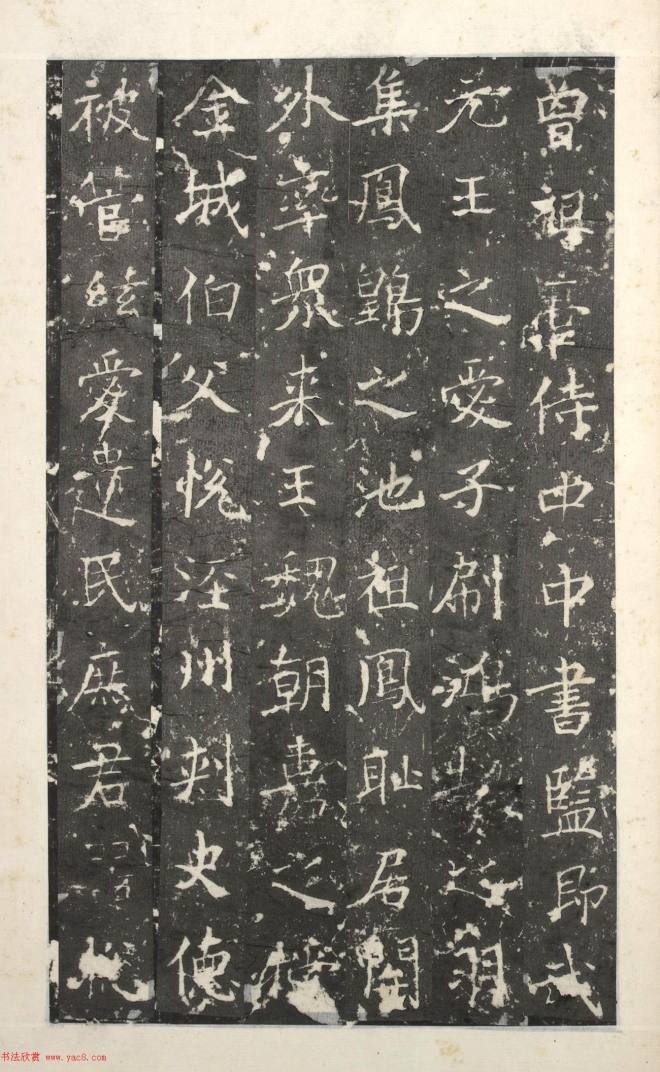 曾祖虔侍中中書監即武
元王之愛子刷鴻
之羽
集鳳鷎之池祖鳳耻居關
外率衆来王魏朝嘉之授
金城伯父悦涇州刺史德
被管絃愛遺民庶君
书法欣赏 www.yac8.com